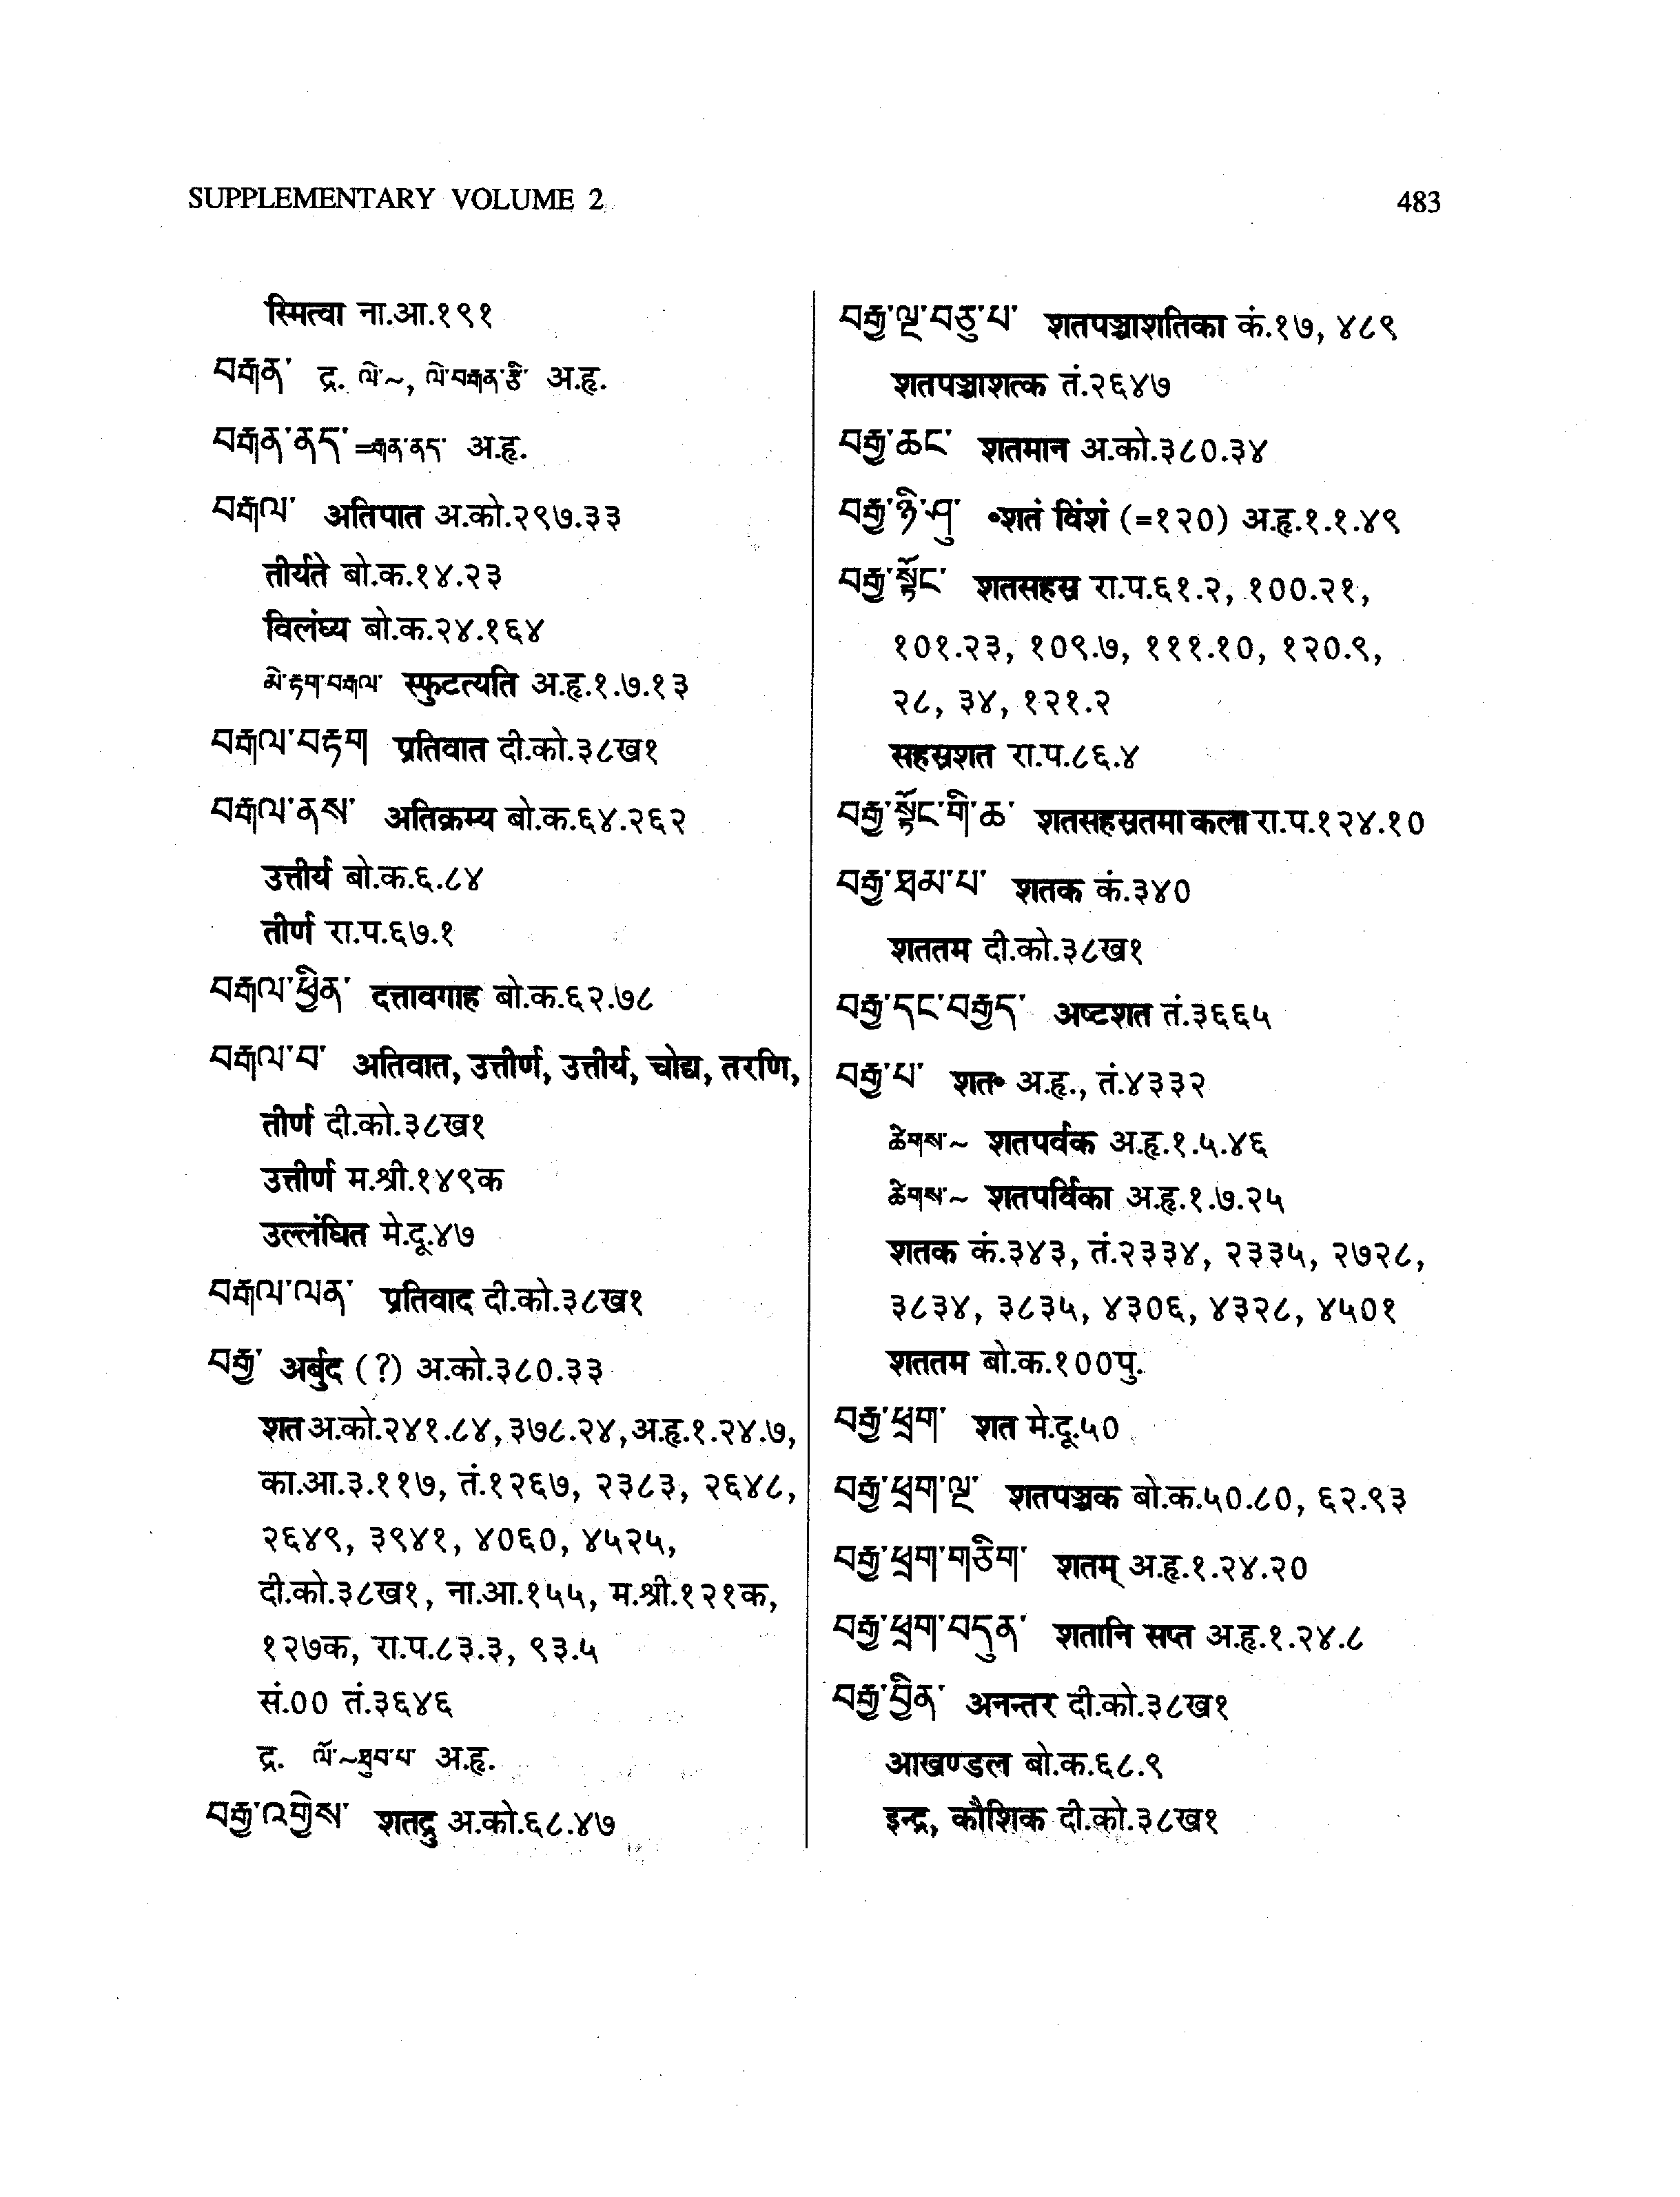 SUPPLEMENTARY VOLUME 2
483
स्मित्वा ना.आ.१९१
བརྒན་ द्र. ལེ་~, ལེ་བརྒན་རྩི་ अ.हृ.
བརྒན་ནད་=རྒན་ནད་ अ.हृ.
བརྒལ་ अतिपात अ.को.२९७.३३
तीर्यते बो.क.१४.२३
विलंघ्य बो.क.२४.१६४
མེ་རྟག་བརྒལ་ स्फुटत्यति अ.हृ.१.७.१३
བརྒལ་བརྟག प्रतिवात दी.को.३८ख१
བརྒལ་ནས་ अतिक्रम्य बो.क.६४.२६२
उत्तीर्य बो.क.६.८४
तीर्ण रा.प.६७.१
བརྒལ་ཕྱིན་ दत्तावगाह बो.क.६२.७८
བརྒལ་བ་ अतिवात, उत्तीर्ण, उत्तीर्य, चोद्य, तरणि,
तीर्ण दी.को.३८ख१
उत्तीर्ण म.श्री.१४९क
उल्लंघित मे.दू.४७
བརྒལ་ལན་ प्रतिवाद दी.को.३८ख१
བརྒྱ་ अर्बुद (?) अ.को.३८०.३३
शत अ.को.२४१.८४, ३७८.२४, अ.हृ.१.२४.७,
का.आ.३.११७, तं.१२६७, २३८३, २६४८,
२६४९, ३९४१, ४०६०, ४५२५,
दी.को.३८ख१, ना.आ.१५५, म.श्री.१२१क,
१२७क, रा.प.८३.३, ९३.५
सं.00 तं.३६४६
द्र. ལོ་~ཐུབ་པ་ अ.हृ.
བརྒྱ་འགྱེས་ शतद्रु अ.को.६८.४७
བརྒྱ་ལྔ་བཅུ་པ་ शतपञ्चाशतिका कं.१७, ४८९
शतपञ्चाशत्क तं.२६४७
བརྒྱ་ཆང་ शतमान अ.को.३८०.३४
བརྒྱ་ཉི་ཤུ་ ॰शतं विंशं (=१२०) अ.हृ.१.१.४९
བརྒྱ་སྟོང་ शतसहस्र रा.प.६१.२, १००.२१,
१०१.२३, १०९.७, १११.१०, १२०.९,
२८, ३४, १२१.२
सहस्रशत रा.प.८६.४
བརྒྱ་སྟོང་གི་ཆ་ शतसहस्रतमा कला रा.प.१२४.१०
བརྒྱ་ཐམ་པ་ शतक कं.३४०
शततम दी.को.३८ख१
བརྒྱ་དང་བརྒྱད་ अष्टशत तं.३६६५
བརྒྱ་པ་ शत॰ अ.हृ., तं.४३३२
ཚེགས་~ शतपर्वक अ.हृ.१.५.४६
ཚེགས་~ शतपर्विका अ.हृ.१.७.२५
शतक कं.३४३, तं.२३३४, २३३५, २७२८,
३८३४, ३८३५, ४३०६, ४३२८, ४५०१
शततम बो.क.१००पु.
བརྒྱ་ཕྲག་ शत मे.दू.५०
བརྒྱ་ཕྲག་ལྔ་ शतपञ्चक बो.क.५०.८०, ६२.९३
བརྒྱ་ཕྲག་གཅིག་ शतम् अ.हृ.१.२४.२०
བརྒྱ་ཕྲག་བདུན་ शतानि सप्त अ.हृ.१.२४.८
བརྒྱ་བྱིན་ अनन्तर दी.को.३८ख१
आखण्डल बो.क.६८.९
इन्द्र, कौशिक दी.को.३८ख१